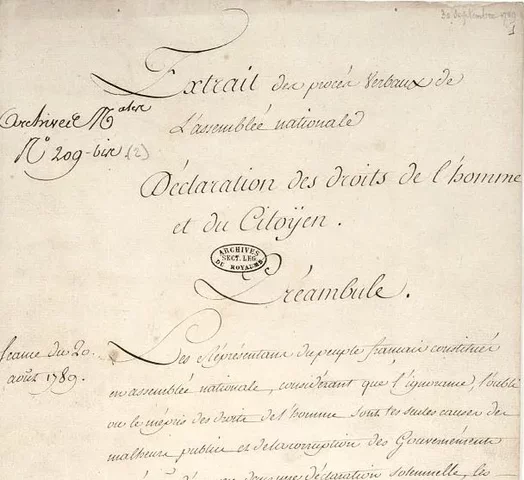 30 Septembre 1789
1
Extrait des procés Verbaux de
L'assemblée nationale
Archives Nales
N° 209-bis (2)
Déclaration des droits de l'homme
et du Citoÿen.
ARCHIVES
SECT. LEG.
DU ROYAUME
Préambule.
Séance du 20.
août 1789.
Les Réprésentans du peuple francais constitués
en assemblée nationale, considérant que l'ignorance, l'oubli
ou le mépris des droits de l'homme sont les seules causes des
malheurs publics et de la corruption des Gouvernements
déclaration solemnelle, les